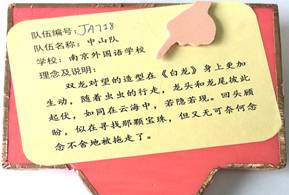 队伍编号：JA718
队伍名称：中山队
学校：南京外国语学校
理念及说明：
双龙对望的造型在《白龙》身上更加
生动，随着虫虫的行走，龙头和龙尾彼此
起伏，如同在云海中，若隐若现。回头顾
盼，似在寻找那颗宝珠，但又无可奈何恋
恋不舍地被拖走了。